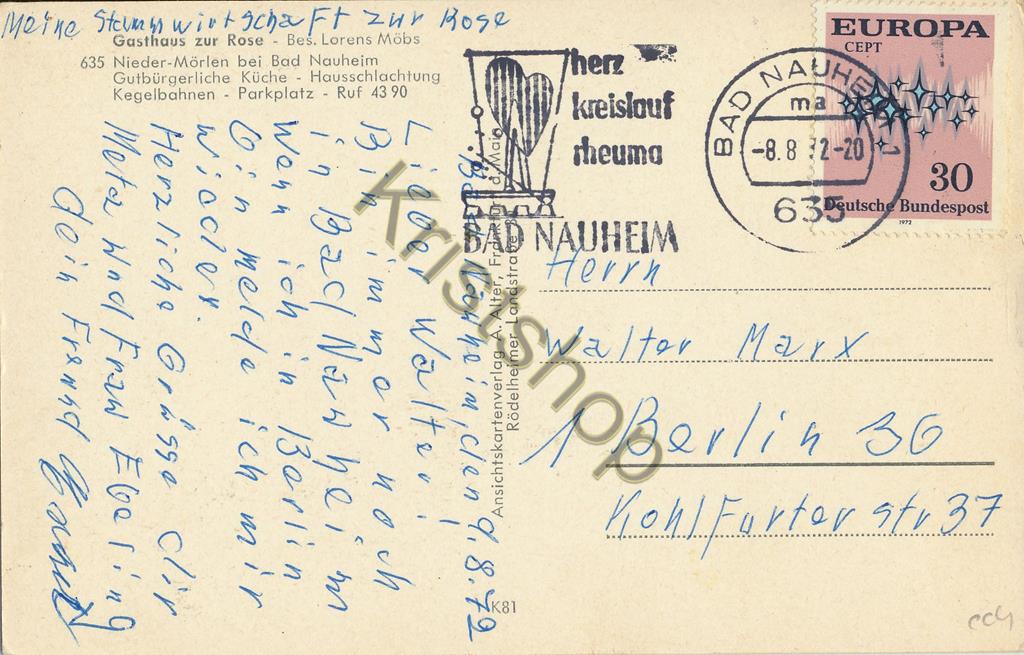 Meine Stammwirtschaft zur Rose
Gasthaus zur Rose - Bes. Lorens Möbs
635 Nieder-Mörlen bei Bad Nauheim
Gutbürgerliche Küche - Hausschlachtung
Kegelbahnen - Parkplatz - Ruf 43 90
Bad Nauheim, den 9.8.72
Lieber Walter!
Bin immer noch
in Bad Nauheim
Wenn ich in Berlin
bin melde ich mir
wieder.
Herzliche Grüsse dir
Meta und Frau Ebeling
dein Freund
Ansichtskartenverlag A. Alter, Frankfurt a. Main
Rödelheimer Landstraße
K81
herz
kreislauf
rheuma
BAD NAUHEIM
BAD NAUHEIM 1
ma
-8.8 72-20
635
EUROPA
CEPT
30
Deutsche Bundespost
1972
Herrn
Walter Marx
1 Berlin 36
Kohlfurter str 37
Kristshop